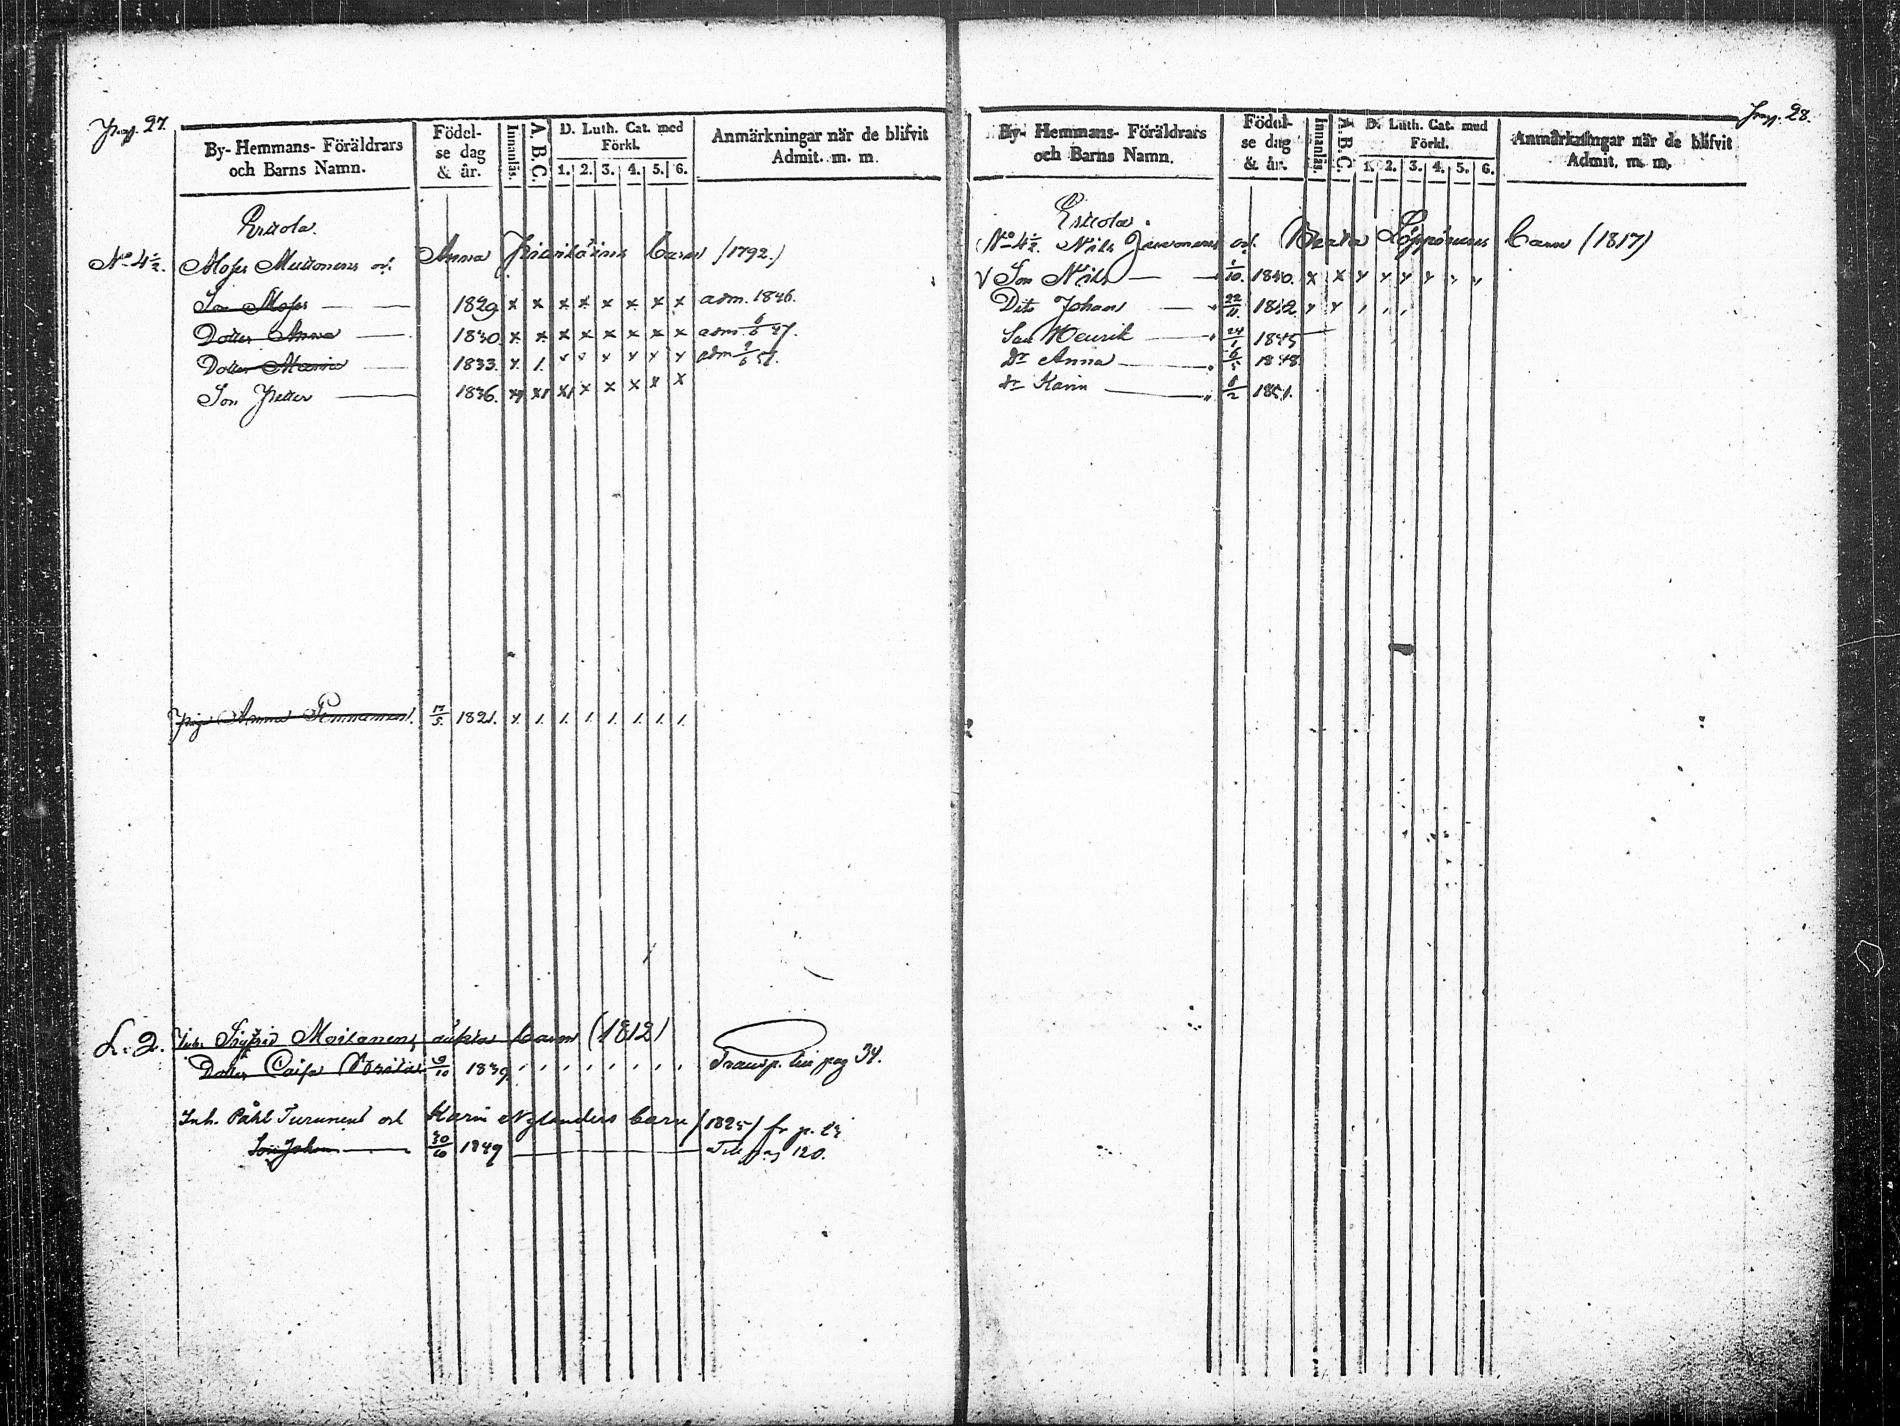 Pag. 27.
By- Hemmans- Föräldrars och Barns Namn.
Födelse dag & år.
Innanläs.
A.B.C.
D. Luth. Cat. med Förkl.
1. 2. 3. 4. 5. 6.
Anmärkningar när de blifvit Admit. m. m.
Ericola.
No 4 1/2. Moses Muttonens och Anna Barn (1792.)
Son Moses 1829 x x x x x x x x adm. 1846.
Dotter Anna 1830 x x x x x x x x adm. 47.
Dotter Maria 1833. x 1. x x x x x x adm
Son Petter 1836. x x x x x x x x
Pig. Anna 17/5 1821. x 1. 1. 1. 1. 1. 1. 1.
L. 2. Inh. Sigfrid Moilanens Barn (1812)
Dotter Caisa 1839
Transp. till pag 34.
Inh. Påhl Turunens och Karin Nylanders Barn (1825) fr p.
Son Johan 1849 Till pag 120.
Pag. 28.
By- Hemmans- Föräldrars och Barns Namn.
Födelse dag & år.
Innanläs.
A.B.C.
D. Luth. Cat. med Förkl.
1. 2. 3. 4. 5. 6.
Anmärkningar när de blifvit Admit. m. m.
Ericola.
No 4 1/2. Nils Juvonens och Beata Löppönens Barn (1817)
V Son Nils 1840. x x x x x x
Dito Johan 22/11 1842
Son Henrik 24/1 1845
Dr Anna 6/5 1848
Dr Karin 8/2 1851.